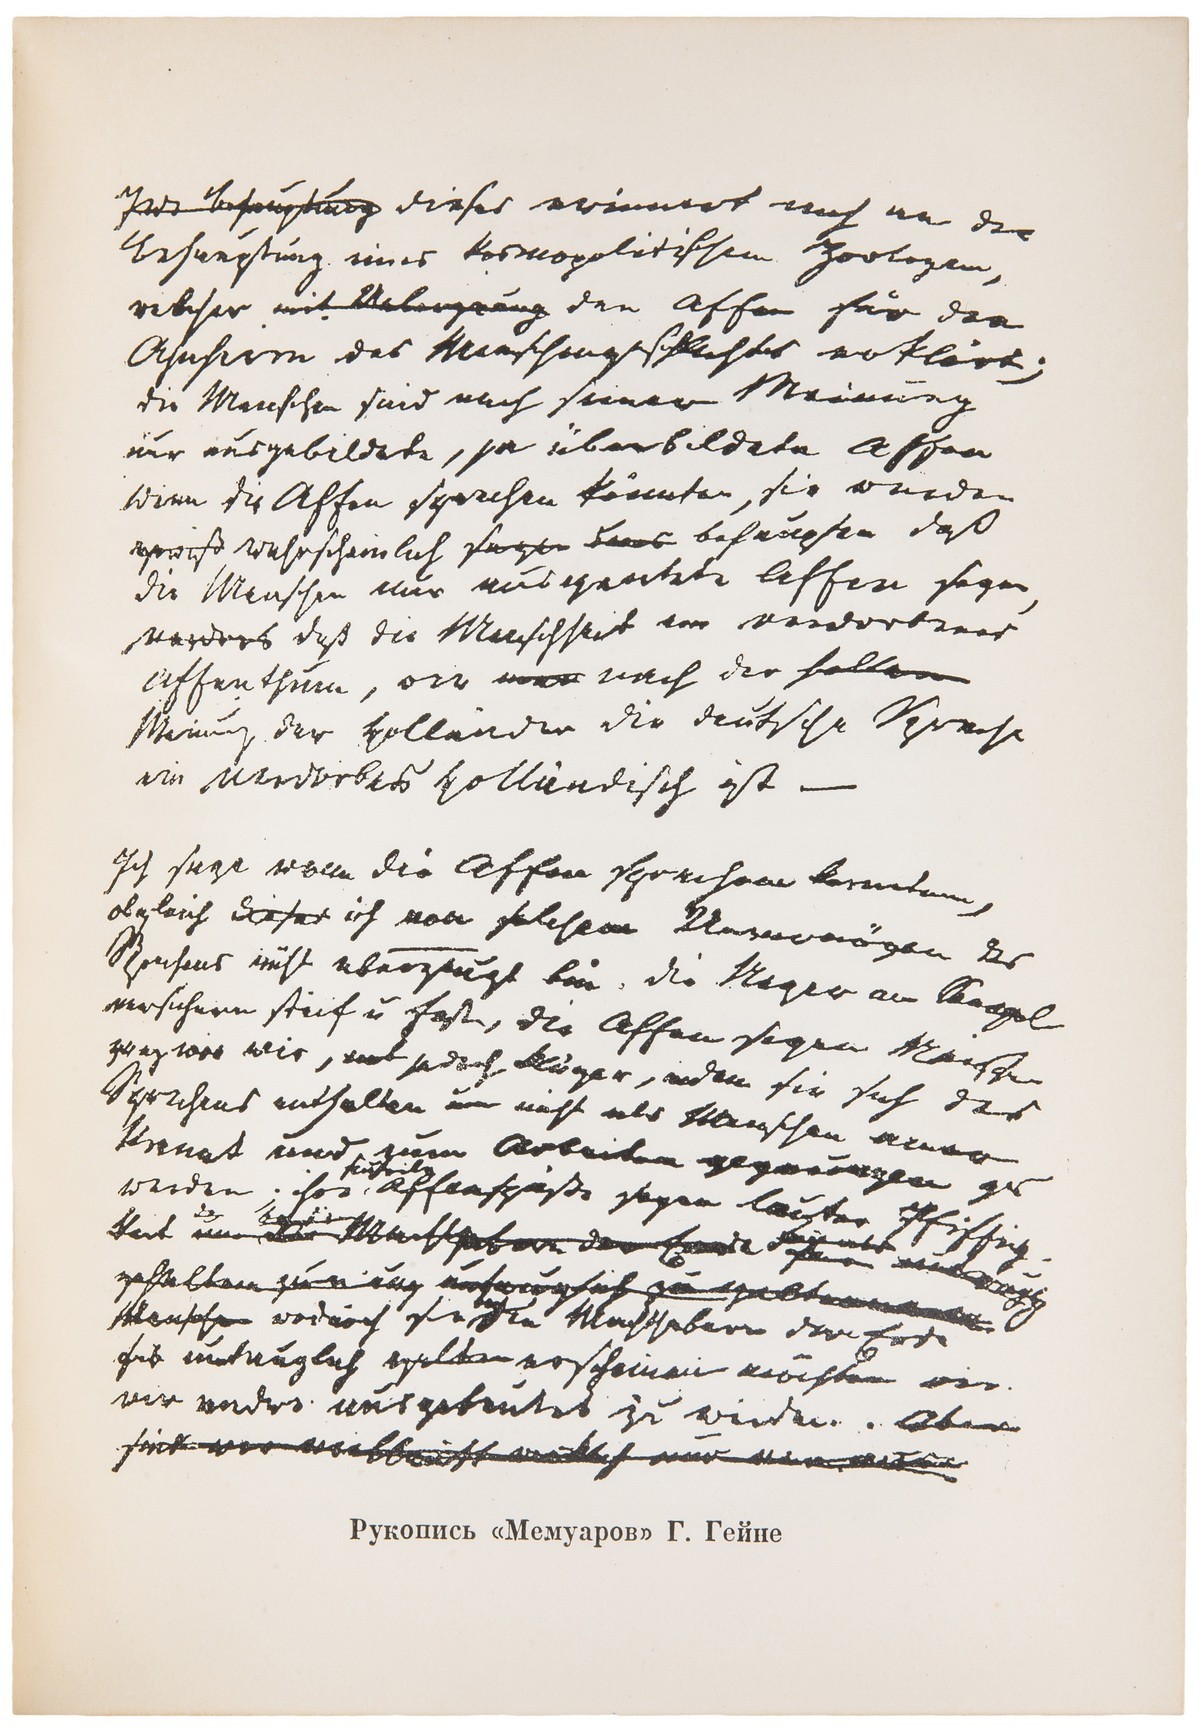 dieses erinnert mich an die
Behauptung eines kosmopolitischen Zoologen,
welcher den Affen für den
Ahnherrn des Menschengeschlechts erklärt;
die Menschen sind nach seiner Meinung
nur ausgebildete, ja überbildete Affen
Wenn die Affen sprechen könnten, sie würden
gewiß wahrscheinlich behaupten daß
die Menschen nur ausgeartete Affen seyen,
daß die Menschheit ein verdorbenes
Affenthum, wie nach der
Meinung der Holländer die deutsche Sprache
ein verdorbes Holländisch ist —
Ich sage wenn die Affen sprechen könnten,
obgleich ich von solchem Unvermögen des
Sprechens nicht überzeugt bin. die Neger am Senegal
versichern steif u fest, die Affen seyen Menschen
ganz wie wir, jedoch klüger, indem sie sich des
Sprechens enthalten um nicht als Menschen aner
kannt und zum Arbeiten gezwungen zu
werden. ihre Affenspäße seyen lauter Pfiffig-
keit
wodurch sie den Machthabern der Erde
untauglich erscheinen möchten wie
wir andre ausgebeutet zu werden. Aber
Рукопись «Мемуаров» Г. Гейне